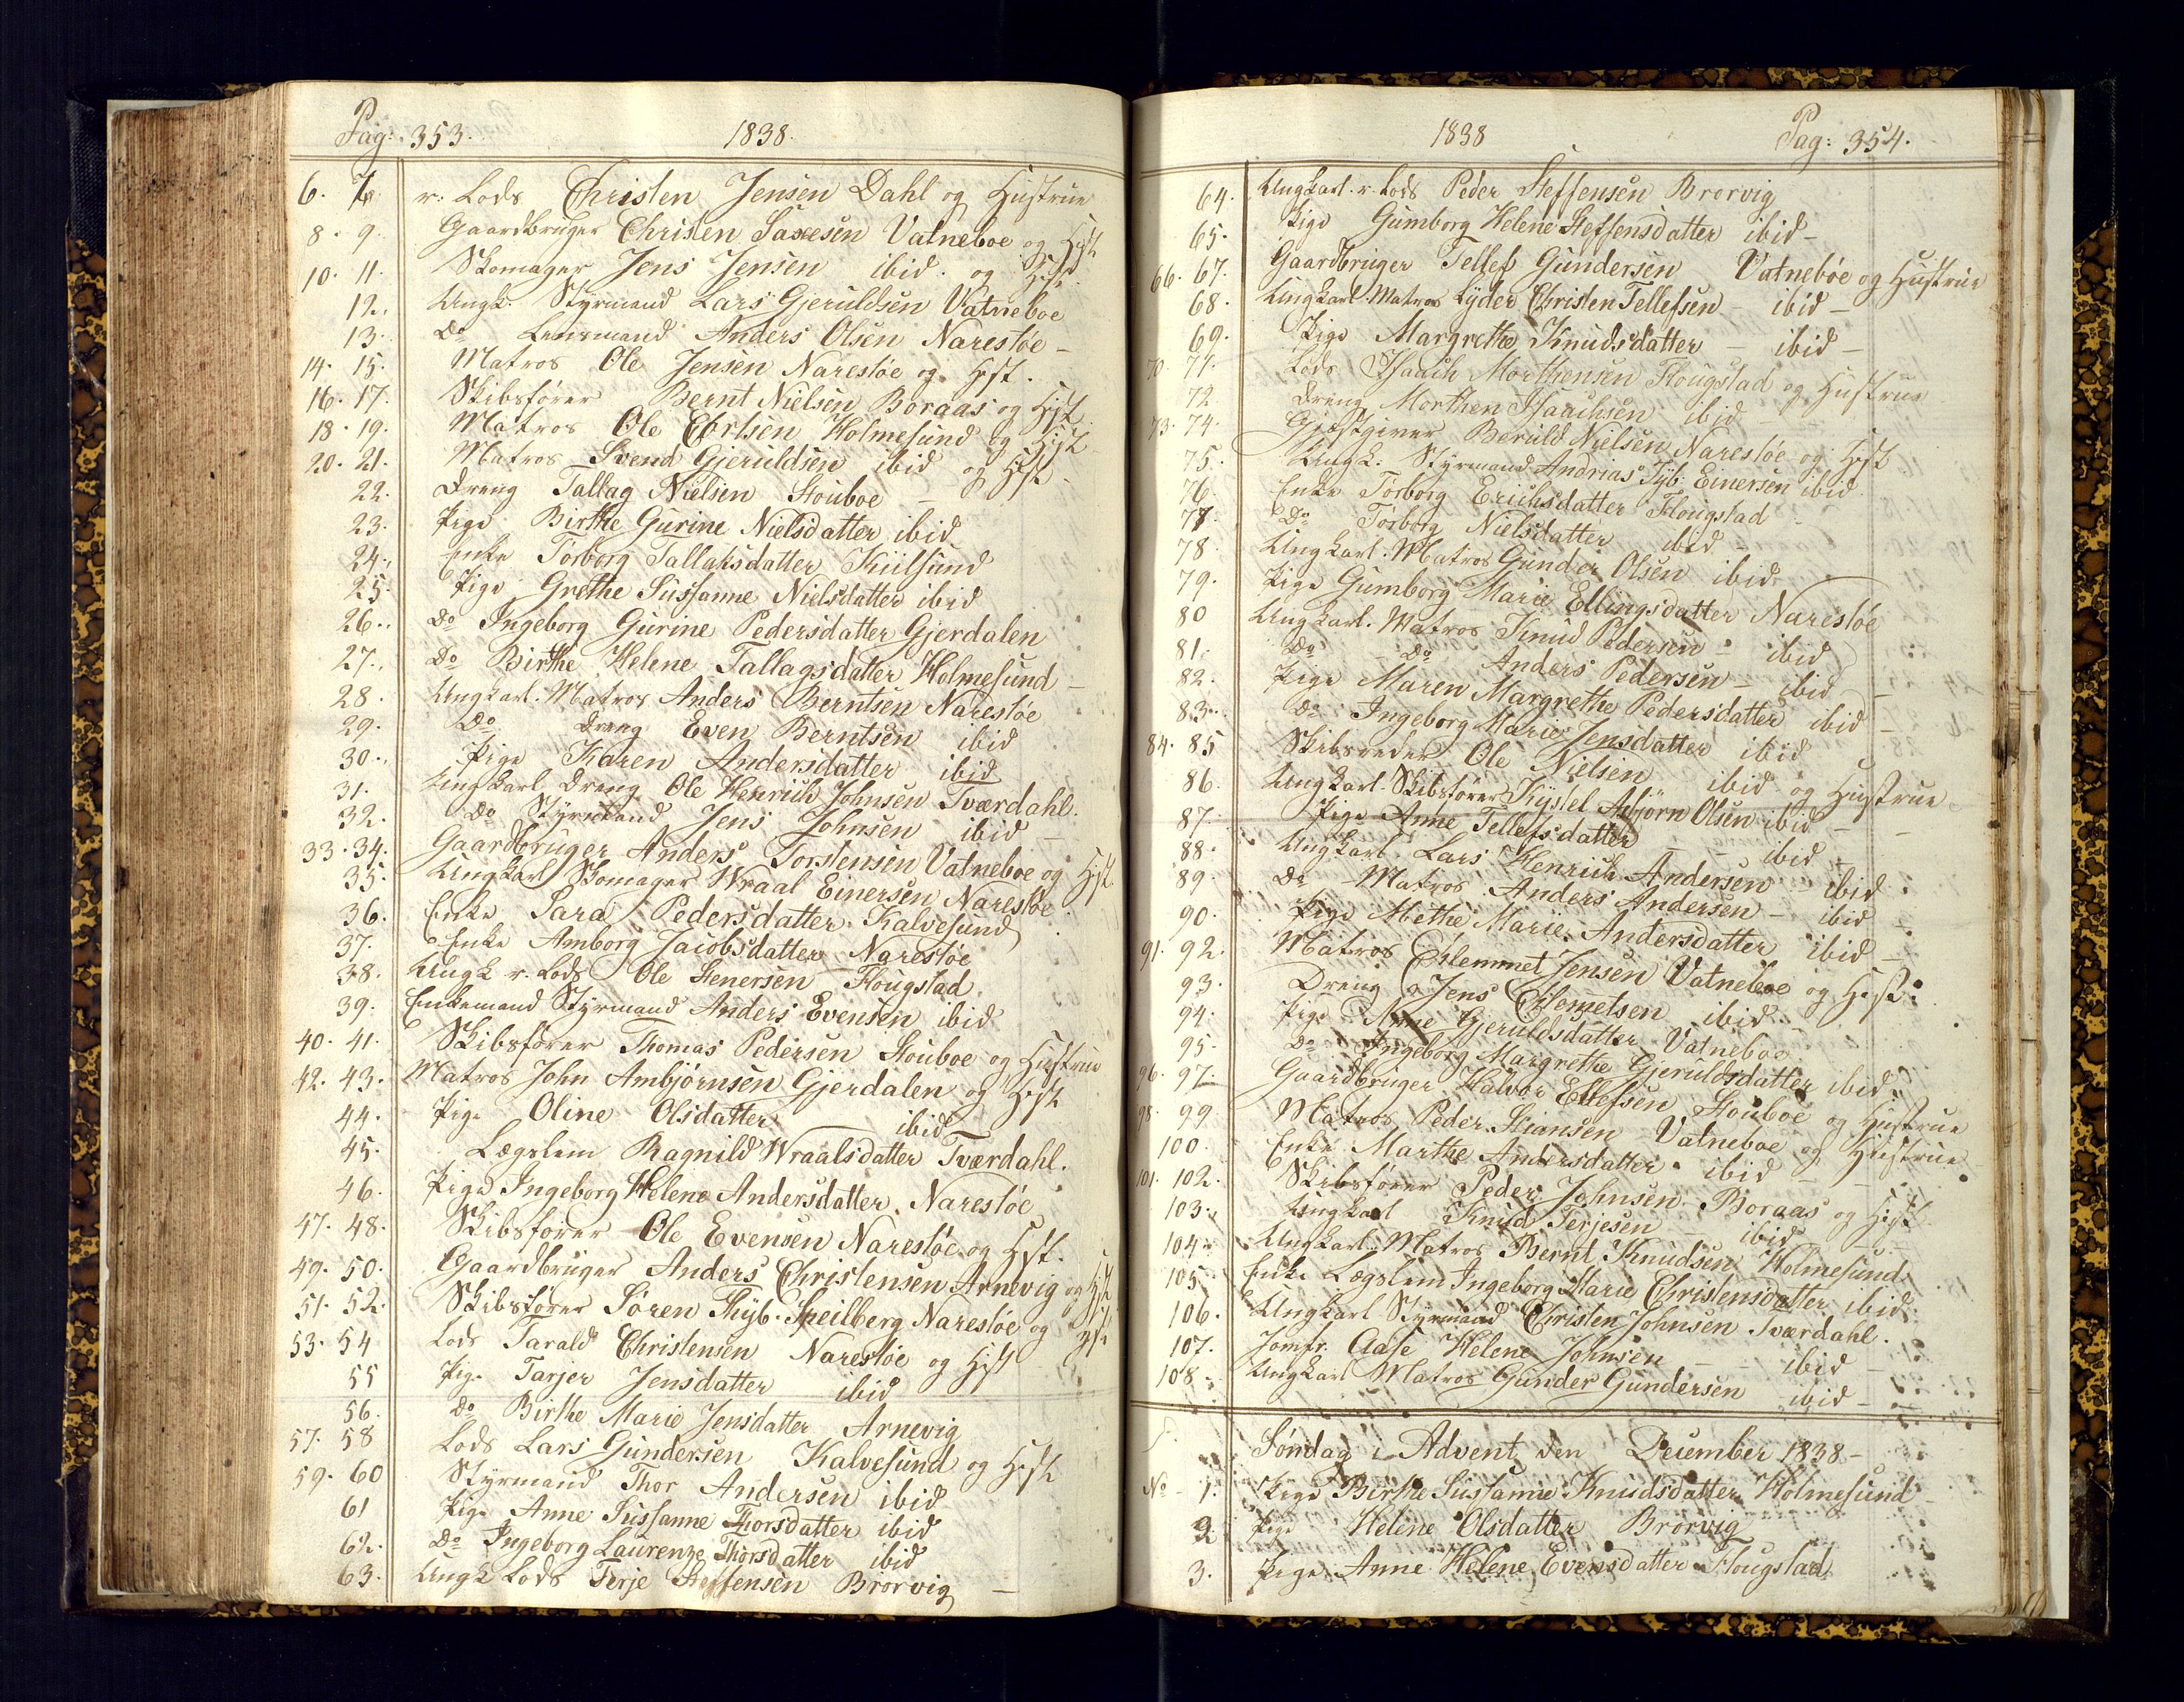 Pag: 353. 1838.
6. 7. r. Lods Christen Jensen Dahl og Hustrue
8. 9. Gaardbruger Christen Saxesen Vatneboe og Hst
10. 11. Skomager Jens Jensen ibid. og Hst
12. Ungk. Styrmand Lars Gjeruldsen Vatneboe
13. Do Lensmand Anders Olsen Narestøe –
14. 15. Matros Ole Jensen Narestøe og Hst.
16. 17. Skibsfører Bernt Nielsen Boraas og Hst
18. 19. Matros Ole Holmesund og Hst
20. 21. Matros Svend Gjeruldsen ibid og Hst –
22. Dreng Tallag Nielsen Stouboe –
23. Pige Birthe Gurine Nielsdatter ibid
24. Enke Torborg Tallaksdatter Kiilsund
25. Pige Grethe Susanne Nielsdatter ibid
26. Do Ingeborg Gurine Pedersdatter Gjerdalen
27. Do Birthe Helene Tallagsdatter Holmesund –
28. Ungkarl. Matros Anders Berntsen Narestøe
29. Do Dreng Even Berntsen ibid
30. Pige Karen Andersdatter ibid
31. Ungkarl Dreng Ole Henrich Johnsen Tværdahl.
32. Do Styrmand Jens Johnsen ibid –
33. 34. Gaardbruger Anders Torstensen Vatneboe og Hst.
35. Ungkarl Skomager Wraal Einersen Narestøe
36. Enke Sara Pedersdatter Kalvesund
37. Enke Amborg Jacobsdatter Narestøe
38. Ungk r. Lods Ole Stenersen Flougstad
39. Enkemand Styrmand Anders Evensen ibid
40. 41. Skibsfører Thomas Pedersen Stouboe og Hustrue
42. 43. Matros John Ambjørnsen Gjerdalen og Hst
44. Pige Oline Olsdatter ibid
45. Lægslem Ragnild Wraalsdatter Tværdahl.
46. Pige Ingeborg Helene Andersdatter Narestøe
47. 48. Skibsfører Ole Evensen Narestøe og Hst.
49. 50. Gaardbruger Anders Christensen Arnevig og Hst
51. 52. Skibsfører Søren Thyb. Speilberg Narestøe og Hst
53. 54 Lods Tarald Christensen Narestøe og Hst
55 Pige Tarjer Jensdatter ibid
56. Do Birthe Marie Jensdatter Arnevig
57. 58 Lods Lars Gundersen Kalvesund og Hst
59. 60 Styrmand Thor Andersen ibid
61 Pige Anne Susanne Thorsdatter ibid
62. Do Ingeborg Laurenze Thorsdatter ibid
63. Ungk Lods Terje Steffensen Brorvig –
1838 Pag: 354.
64. Ungkarl. r. Lods Peder Steffensen Brorvig
65. Pige Gumborg Helene Steffensdatter ibid –
66. 67. Gaardbruger Tellef Gundersen Vatnebøe og Hustrue
68. Ungkarl. Matros Lyder Christen Tellefsen ibid –
69. Pige Margrethe Knudsdatter – ibid –
70. 71. Lods Isaach Morthensen Flougstad og Hustrue
72. Dreng Morthen Isaachsen ibid
73. 74. Gjestgiver Beruld Nielsen Narestøe og Hst
75. Ungk. Styrmand Andrias Tyb. Einersen ibid
76. Enke Torborg Erichsdatter Flougstad
77. Do Torborg Nielsdatter ibid –
78. Ungkarl. Matros Gunder Olsen ibid
79. Pige Gumborg Marie Ellingsdatter Narestøe
80 Ungkarl. Matros Knud Pedersen – ibid
81. Do Do Anders Pedersen – ibid
82. Pige Maren Margrethe Pedersdatter ibid –
83. Do Ingeborg Marie Jensdatter ibid
84. 85 Skibsreder Ole Nielsen ibid og Hustrue
86. Ungkarl. Skibsfører Kystel Asbjørn Olsen ibid –
87. Pige Anne Tellefsdatter – ibid –
88. Ungkarl Lars Henrich Andersen – ibid
89. Do Matros Anders Andersen – ibid
90. Pige Methe Marie Andersdatter ibid –
91. 92. Matros Clemmet Jensen Vatneboe og Hst.
93. Dreng Jens Clemetsen ibid
94. Pige Anne Gjeruldsdatter Vatneboe
95. Do Ingeborg Margrethe Gjeruldsdatter ibid.
96. 97. Gaardbruger Halvor Ellefsen Stouboe og Hustrue
98. 99. Matros Peder Vatneboe og Hustrue
100. Enke Marthe Andersdatter ibid –
101. 102. Skibsfører Peder Johnsen Boraas og Hst
103. Ungkarl Knud Terjesen – ibid
104. Ungkarl. Matros Bernt Knudsen Holmesund.
105 Enke Lægslem Ingeborg Marie Christensdatter ibid.
106. Ungkarl Styrmand Christen Johnsen Tværdahl.
107. Jomfr. Aase Helene Johnsen – ibid
108. Ungkarl Matros Gunder Gundersen ibid –
Søndag i Advent den December 1838 –
No – 1. Pige Birthe Susanne Knudsdatter Holmesund
2. Pige Helene Olsdatter Brorvig
3. Pige Anne Helene Evensdatter Flougstad